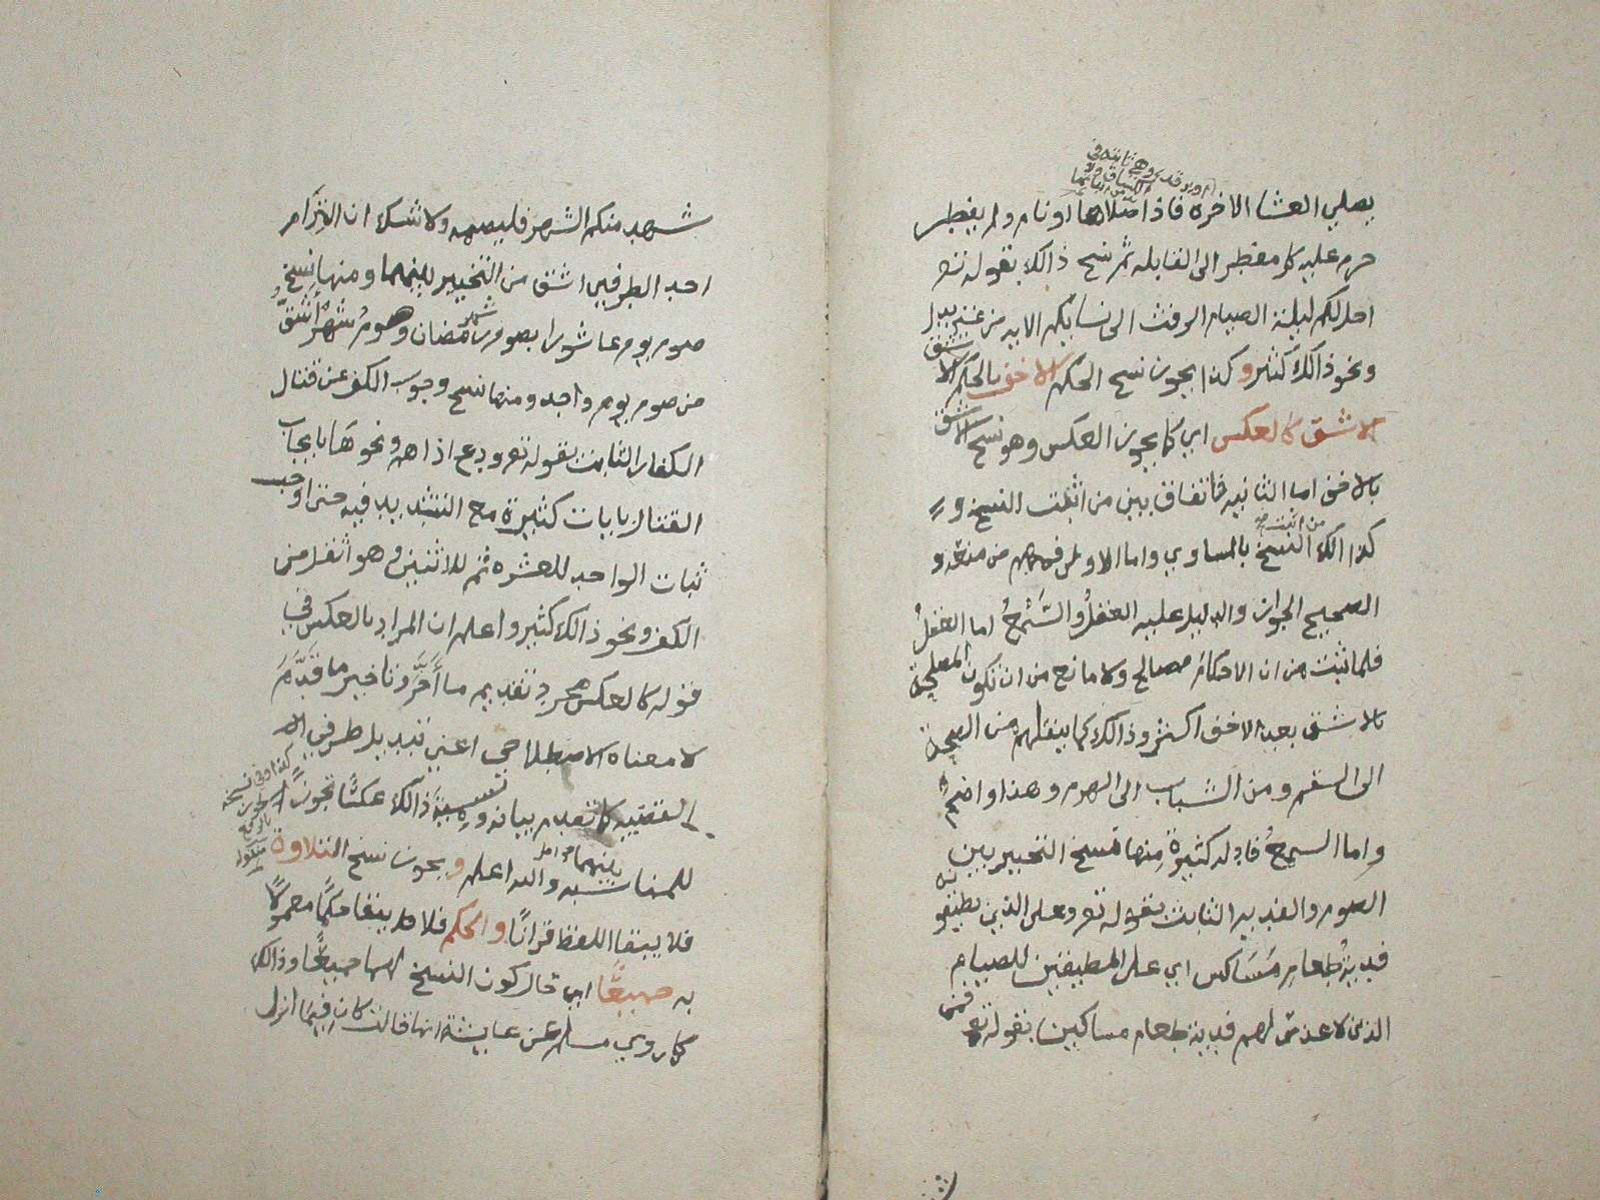 يصلي العشا الاخرة فاذا صلاها او نام ولم يفطر
حرم عليه كل مفطر الى القابله ثم نسخ ذالك بقوله تعـ
احل لكم ليلة الصيام الرفث الى نسايكم الايه من غير بدل
ونحو ذالك كثير وكذا يجوز نسخ الحكم الاخف بالحكم الاشق
الاشق كالعكس اي كما يجوز العكس وهو نسخ الاشق
بالاخف اما الثانيه فاتفاق بين من اثبت النسخ و
كذا الك النسخ بالمساوي واما الاولى فمنهم من منعه و
الصحيح الجواز والدليل عليه العقلُ والسَّمْعُ اما العقلُ
فلما ثبت من ان الاحكام مصالح ولا مانع من ان تكون المصلحة
بالاشق بعد الاخف اكثر وذالك كما ينقلهم من الصحة
الى السقم ومن الشباب الى الهرم وهذا واضح
واما السمعُ فادله كثيرة منها نسخ التخيير بين
الصوم والفديه الثابت بقوله تعـ وعلى الذين يطيقونه
فديةٌ طعام مَسَاكين اي على المطيقين للصيام
الذين لا عذر لهم فدية طعام مساكين بقوله تعـ فمن
شهد منكم الشهر فليصمه ولا شك ان الالزام
احد الطرفين اشق من التخيير بينهما ومنها نسخ
صوم يوم عاشورا بصوم شهر رمضان وهو صوم شهرٍ أشقُّ
من صوم يوم واحد ومنها نسخ وجوب الكف عن قتال
الكفار الثابت بقوله تعـ ودع اذاهم ونحوها بايجاب
القتال بايات كثيرة مع التشديد فيه حتى اوجب
ثبات الواحد للعشره ثم للاثنين وهو اثقل من
الكف ونحو ذالك كثير واعلم ان المراد بالعكس في
قوله كالعكس مجرد تقديم ما أُخَّرَ وتاخير ما قدَّمَ
لا معناه الاصطلاحي اعني تبديل طرفي
القضيه كما تقدم بيانه وتسمية ذالك عكسًا تجوزًا
للمناسبه بينهما والله اعلم ويجوز نسخ التلاوة
فلا يبقا اللفظ قرانًا والحكم فلا يبقا حكمًا معمولًا
به جميعًا اي حال كون النسخ لهما جميعًا وذالك
كما روي مسلم عن عايشة انها قالت كان فيما انزل